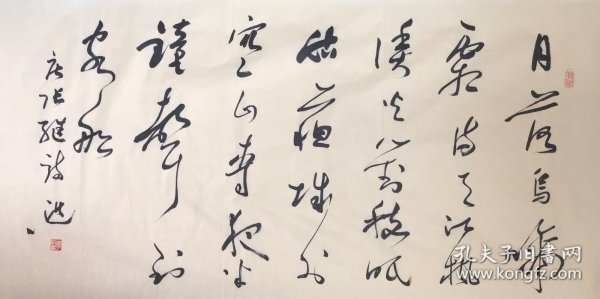 月落烏啼
霜满天江枫
漁火對愁眠
姑蘇城外
寒山寺夜半
鐘聲到
客船
唐张繼诗
孔夫子旧书网
www.kongfz.com